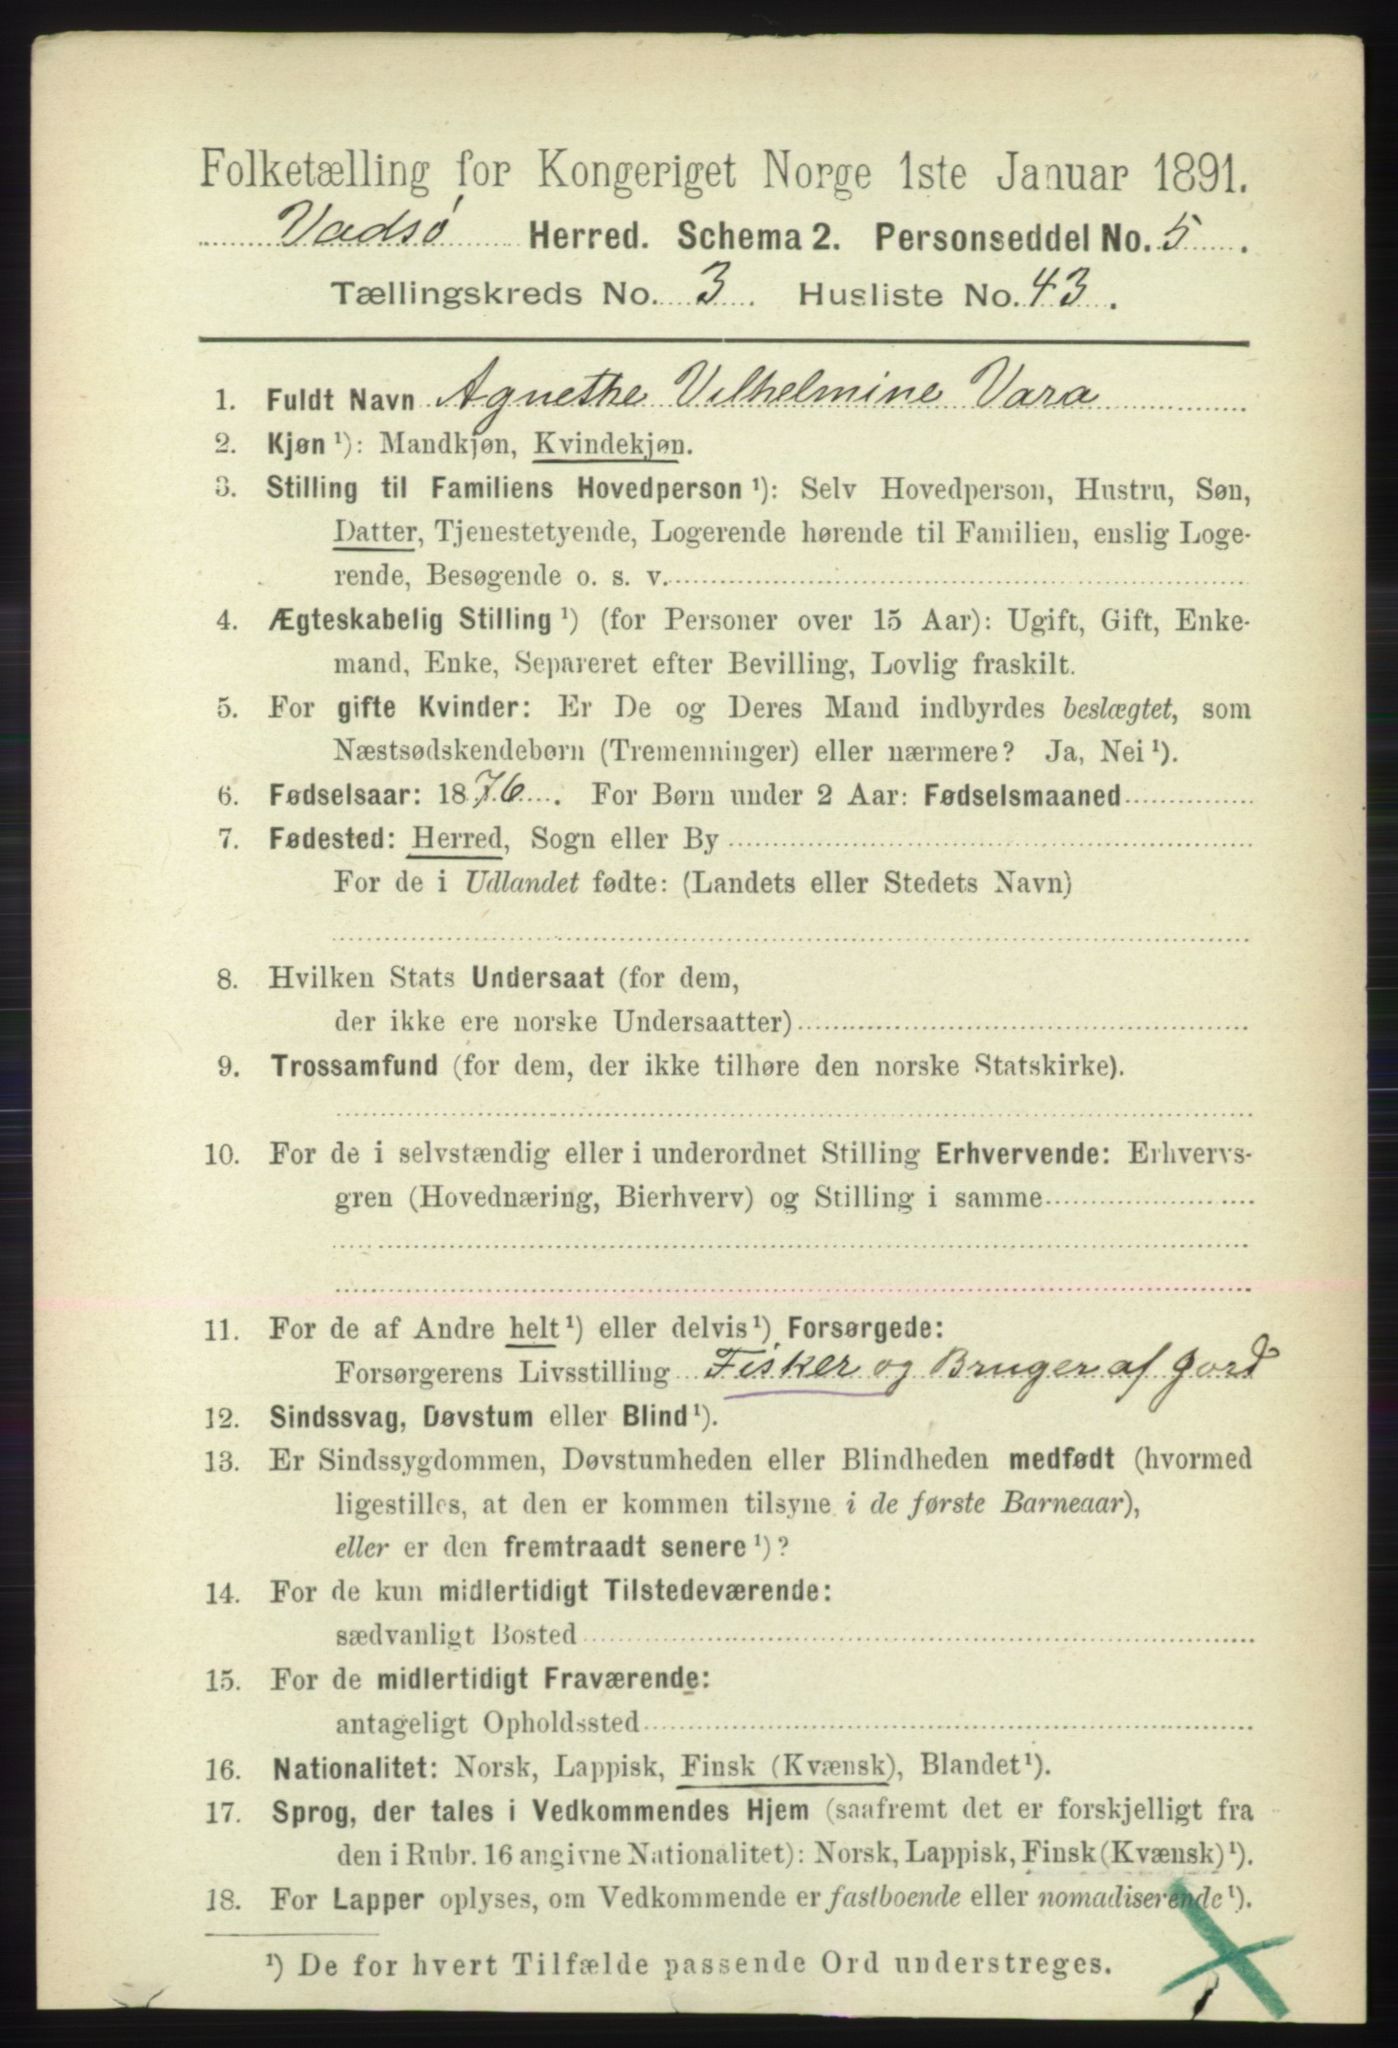 Folketælling for Kongeriget Norge 1ste Januar 1891.
Vadsø Herred. Schema 2. Personseddel No. 5.
Tællingskreds No. 3. Husliste No. 43.
1. Fuldt Navn Agnethe Vilhelmine Vara
2. Kjøn ¹): Mandkjøn, Kvindekjøn.
3. Stilling til Familiens Hovedperson ¹): Selv Hovedperson, Hustru, Søn,
Datter, Tjenestetyende, Logerende hørende til Familien, enslig Loge-
rende, Besøgende o. s. v.
4. Ægteskabelig Stilling ¹) (for Personer over 15 Aar): Ugift, Gift, Enke-
mand, Enke, Separeret efter Bevilling, Lovlig fraskilt.
5. For gifte Kvinder: Er De og Deres Mand indbyrdes beslægtet, som
Næstsødskendebørn (Tremenninger) eller nærmere? Ja, Nei ¹).
6. Fødselsaar: 1876. For Børn under 2 Aar: Fødselsmaaned
7. Fødested: Herred, Sogn eller By
For de i Udlandet fødte: (Landets eller Stedets Navn)
8. Hvilken Stats Undersaat (for dem,
der ikke ere norske Undersaatter)
9. Trossamfund (for dem, der ikke tilhøre den norske Statskirke).
10. For de i selvstændig eller i underordnet Stilling Erhvervende: Erhvervs-
gren (Hovednæring, Bierhverv) og Stilling i samme
11. For de af Andre helt ¹) eller delvis ¹) Forsørgede:
Forsørgerens Livsstilling Fisker og Bruger af Jord
12. Sindssvag, Døvstum eller Blind ¹).
13. Er Sindssygdommen, Døvstumheden eller Blindheden medfødt (hvormed
ligestilles, at den er kommen tilsyne i de første Barneaar),
eller er den fremtraadt senere ¹)?
14. For de kun midlertidigt Tilstedeværende:
sædvanligt Bosted
15. For de midlertidigt Fraværende:
antageligt Opholdssted
16. Nationalitet: Norsk, Lappisk, Finsk (Kvænsk), Blandet ¹).
17. Sprog, der tales i Vedkommendes Hjem (saafremt det er forskjelligt fra
den i Rubr. 16 angivne Nationalitet): Norsk, Lappisk, Finsk (Kvænsk) ¹).
18. For Lapper oplyses, om Vedkommende er fastboende eller nomadiserende ¹).
¹) De for hvert Tilfælde passende Ord understreges.